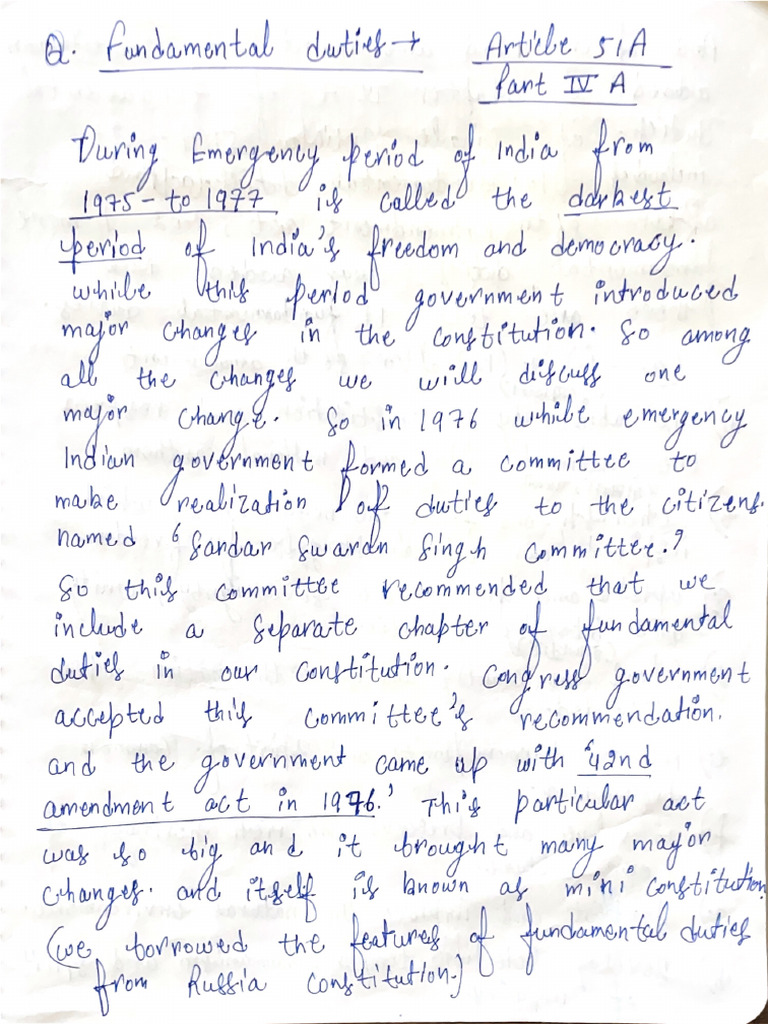 Q. Fundamental duties → Article 51A
Part IV A
During Emergency period of India from
1975 - to 1977 is called the darkest
period of India's freedom and democracy.
while this period government introduced
major changes in the constitution. So among
all the changes we will discuss one
major change. So in 1976 while emergency
Indian government formed a committee to
make realization of duties to the citizens.
named 'Sardar Swaran Singh committee.'
So this committee recommended that we
include a separate chapter of fundamental
duties in our constitution. Congress government
accepted this committee's recommendation.
and the government came up with '42nd
amendment act in 1976.' This particular act
was so big and it brought many major
changes. and itself is known as mini constitution
(we borrowed the features of fundamental duties
from Russia constitution.)